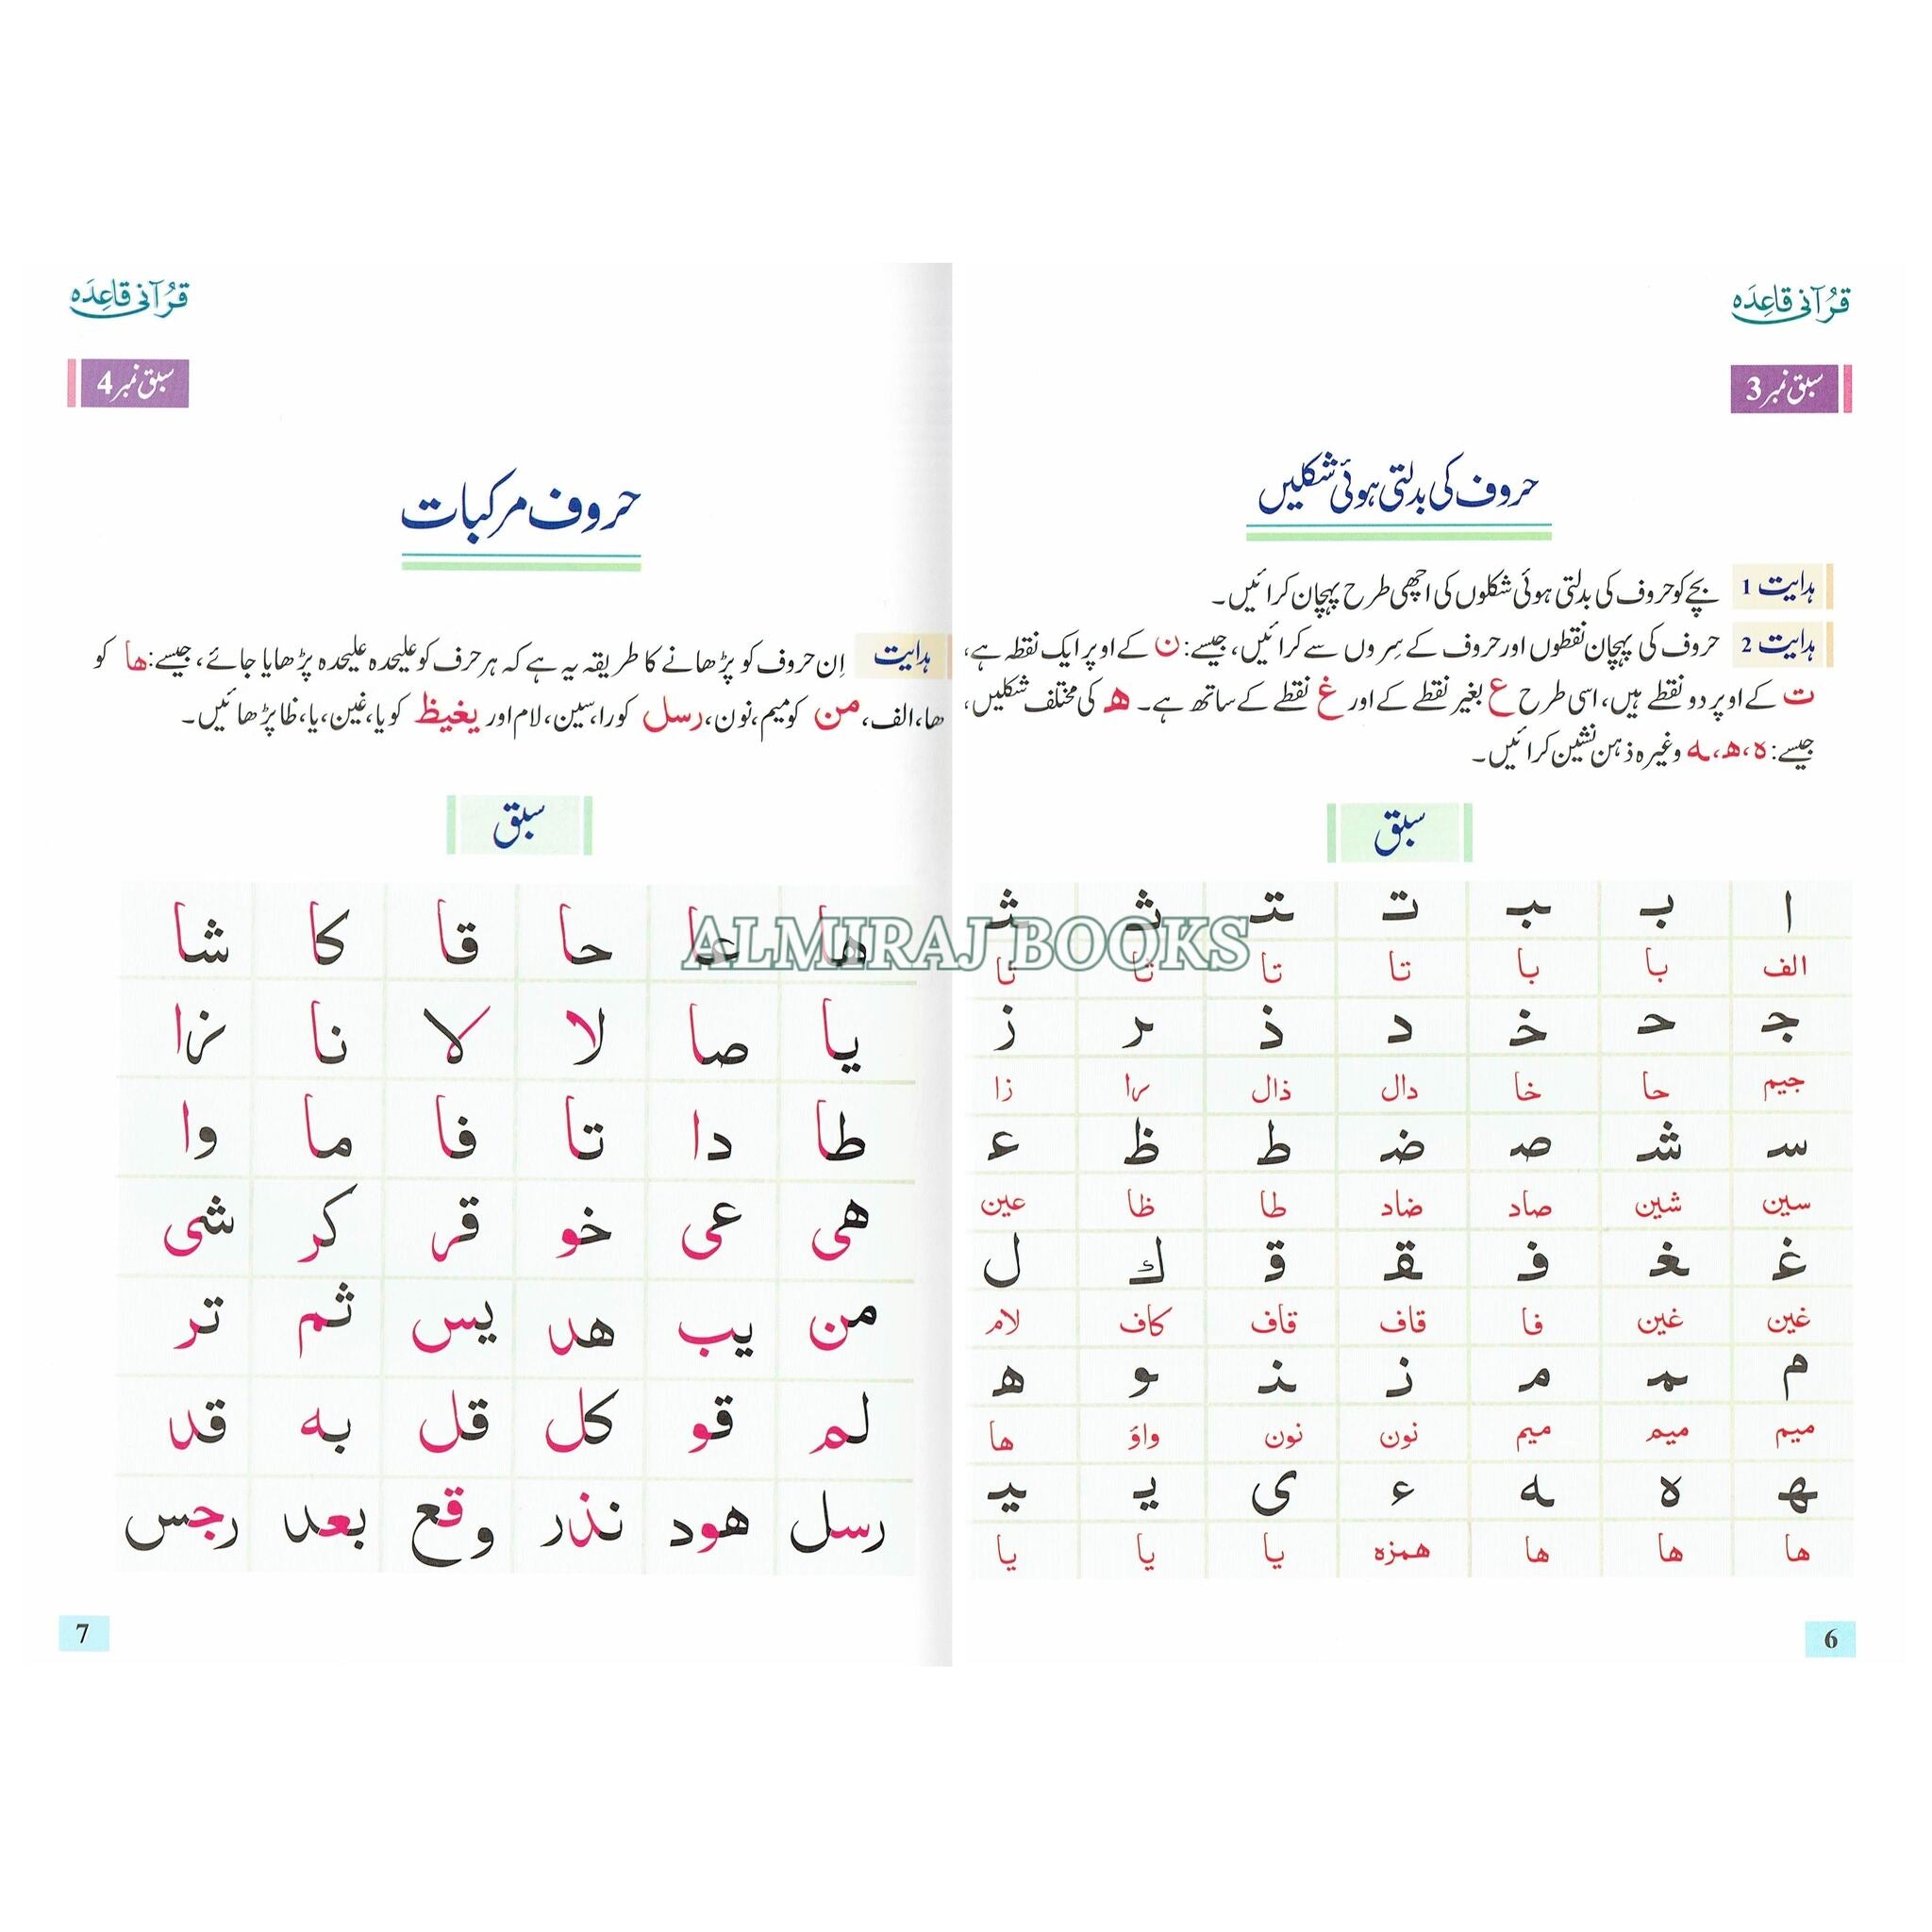 قرآنی قاعدہ
سبق نمبر 3
حروف کی بدلتی ہوئی شکلیں
ہدایت 1 بچے کو حروف کی بدلتی ہوئی شکلوں کی اچھی طرح پہچان کرائیں۔
ہدایت 2 حروف کی پہچان نقطوں اور حروف کے سِروں سے کرائیں، جیسے: ن کے اوپر ایک نقطہ ہے،
ت کے اوپر دو نقطے ہیں، اسی طرح ع بغیر نقطے کے اور غ نقطے کے ساتھ ہے۔ ھ کی مختلف شکلیں،
جیسے: ہ، ھ، ـہ وغیرہ ذہن نشین کرائیں۔
سبق
ا بـ ـبـ تـ ـتـ ثـ ـثـ
الف با با تا تا ثا ثا
جـ حـ خـ د ذ ر ز
جیم حا خا دال ذال را زا
سـ شـ صـ ضـ ط ظ عـ
سین شین صاد ضاد طا ظا عین
غـ ـغـ فـ ـقـ قـ ك ل
غین غین فا قاف قاف کاف لام
م ـمـ مـ نـ ـنـ و ھ
میم میم میم نون نون واؤ ھا
ـهـ ہ ـہ ء ی یـ ـیـ
ھا ھا ھا ھمزہ یا یا یا
6
قرآنی قاعدہ
سبق نمبر 4
حروف مرکبات
ہدایت اِن حروف کو پڑھانے کا طریقہ یہ ہے کہ ہر حرف کو علیحدہ علیحدہ پڑھایا جائے، جیسے: ھا کو
ھا، الف، من کو میم، نون، رسل کو را، سین، لام اور یغیظ کو یا، غین، یا، ظا پڑھائیں۔
سبق
ھا عا حا قا کا شا
یا صا لا لا نا زا
طا دا تا فا ما وا
ھی عی خو قر کر شی
من یب ھد یس ثم تر
لم قو کل قل بہ قد
رسل ھود نذر وقع بعد رجس
7
ALMIRAJ BOOKS